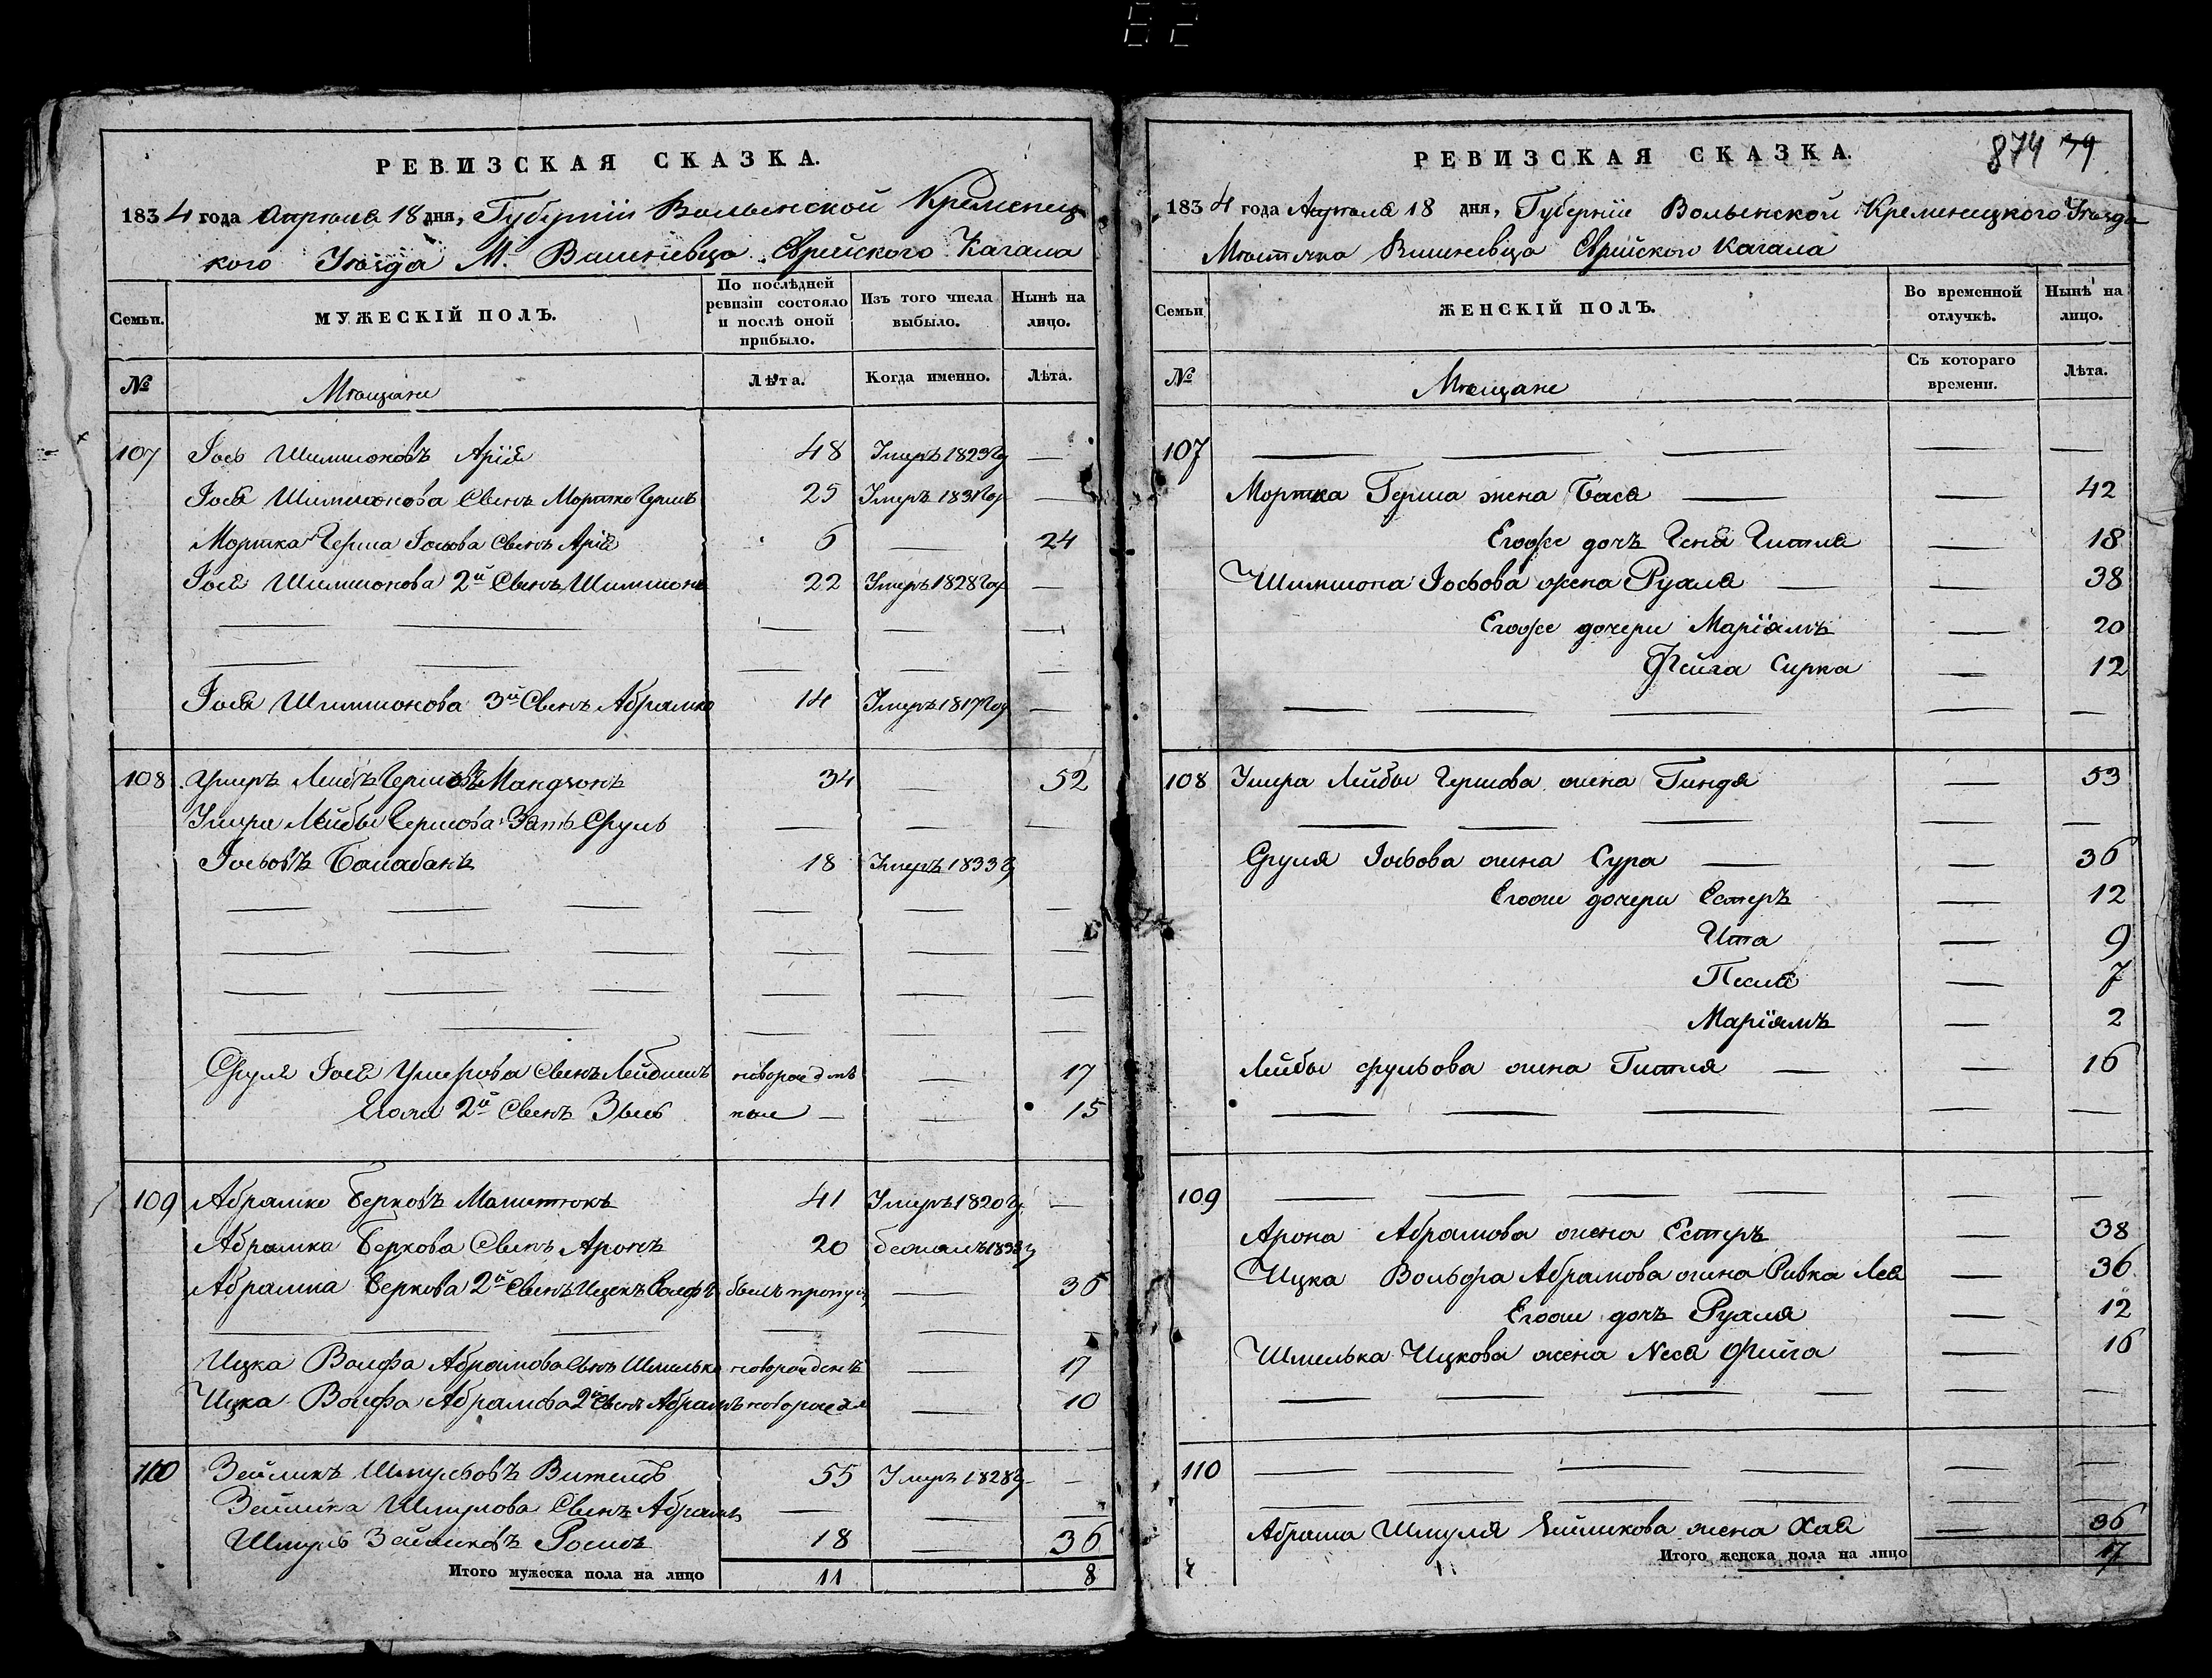 82
РЕВИЗСКАЯ СКАЗКА.
1834 года Апрѣля 18 дня, Губерніи Волынской Кременец
кого Уѣзда М. Вишневца Еврейского Кагала
Семьи.
МУЖЕСКІЙ ПОЛЪ.
По послѣдней ревизіи состояло и послѣ оной прибыло.
Изъ того числа выбыло.
Нынѣ на лицо.
№
Мѣщане
Лѣта.
Когда именно.
Лѣта.
107 Іось Шимшоновъ Арія 48 Умеръ 1823 г —
Іося Шимшонова Сынъ Мортко Гершъ 25 Умеръ 1831 год —
Мортка Герша Іосьова Сынъ Арія 6 — 24
Іося Шимшонова 2й Сынъ Шимшонъ 22 Умеръ 1828 год —
Іося Шимшонова 3й Сынъ Абрамко 14 Умеръ 1817 год —
108 Ушеръ Лейбъ Гершовъ Мандзонъ 34 — 52
Ушера Лейбы Гершова Зять Сруль — — —
Іосьовъ Балабанъ 18 Умеръ 1833 г
Сруля Іося Ушерова Сынъ Лейбишъ новорожден — 17
Егоже 2й Сынъ Зысь ные — — 15
109 Абрамко Берковъ Малитонъ 41 Умеръ 1820 г. —
Абрамка Беркова Сынъ Аронъ 20 бежалъ 183 г
Абрамка Беркова 2й Сынъ Ицекъ Волфъ былъ пропущ — 36
Ицка Волфа Абрамова Сынъ Шмилько новорожденъ — 17
Ицка Волфа Абрамова 2й Сынъ Абрамъ новорожд — 10
110 Зейликъ Шмульовъ Вителсъ 55 Умеръ 1828 г —
Зейлика Шмулова Сынъ Абрамъ — — —
Шмуль Зейликовъ 18 — 36
Итого мужеска пола на лицо 11 8
874 79
РЕВИЗСКАЯ СКАЗКА.
1834 года Апрѣля 18 дня, Губерніи Волынской Кременецкого Уѣзда
Мѣстечка Вишневца Еврейского Кагала
Семьи
ЖЕНСКІЙ ПОЛЪ.
Во временной отлучкѣ.
Нынѣ на лицо.
№
Мѣщане
Съ котораго времени.
Лѣта.
107 — — — — —
Мортка Герша жена Бася — — 42
Егоже дочь Геня Гитля — 18
Шимшона Іосьова жена Рухля — — 38
Егоже дочери Маріямъ — 20
Фейга Сирка — 12
108 Ушера Лейбы Гершова жена Гиндя — 53
Сруля Іосьова жена Сура — — 36
Егоже дочери Естеръ — 12
Ита — 9
Песля — 7
Маріямъ — 2
Лейбы Срульова жена Гитля — — 16
109 — — — — — —
Арона Абрамова жена Естеръ — 38
Ицка Вольфа Абрамова жена Ривка Лея — 36
Егоже дочь Рухля — 12
Шмилька Ицкова жена Неся Фейга — 16
110 — — — — —
Абрама Шмуля Зейликова жена Хая — 36
Итого женска пола на лицо 17